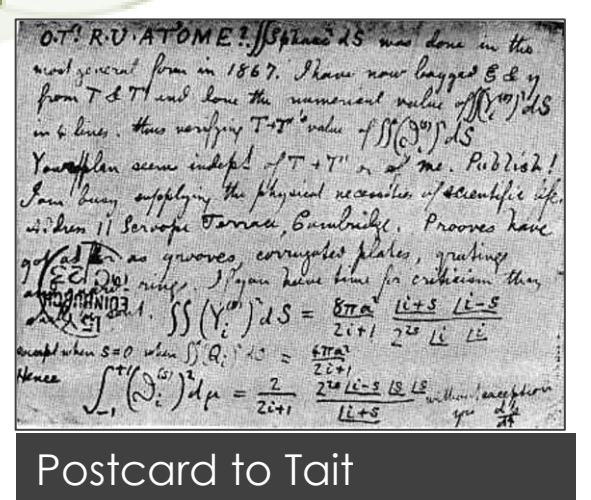 O.T! R.U. AT OME? ∬Spharc² dS was done in the
most general form in 1867. I have now bagged ξ & η
from T & T' and done the numerical value of ∬(Y_i^(s))² dS
in 4 lines. thus verifying T+T''s value of ∬(ϑ_i^(s))² dS
Your plan seems indept of T + T' or of me. Publish!
I am busy supplying the physical necessities of scientific life.
Address 11 Scroope Terrace, Cambridge. Prooves have
got as far as grooves, corrugated plates, gratings
rings. If you have time for criticism they
sent. ∬(Y_i^(s))² dS = 8πa²/2i+1 |i+s |i-s / 2^2s |i |i
except when s=0 when ∬(Q_i)² dS = 4πa²/2i+1
Hence
∫_-1^+1 (ϑ_i^(s))² dμ = 2/2i+1 2^2s |i-s |s |s / |i+s without exception
yrs dp/dt
EDINBURGH
Postcard to Tait